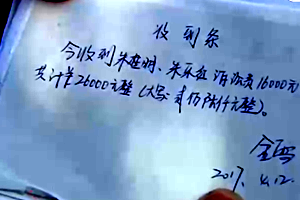 收到条
今收到朱建明、朱乐红诉讼费16000元
共计苯26000元整(大写:贰万陆仟元整)。
2017.4.12.